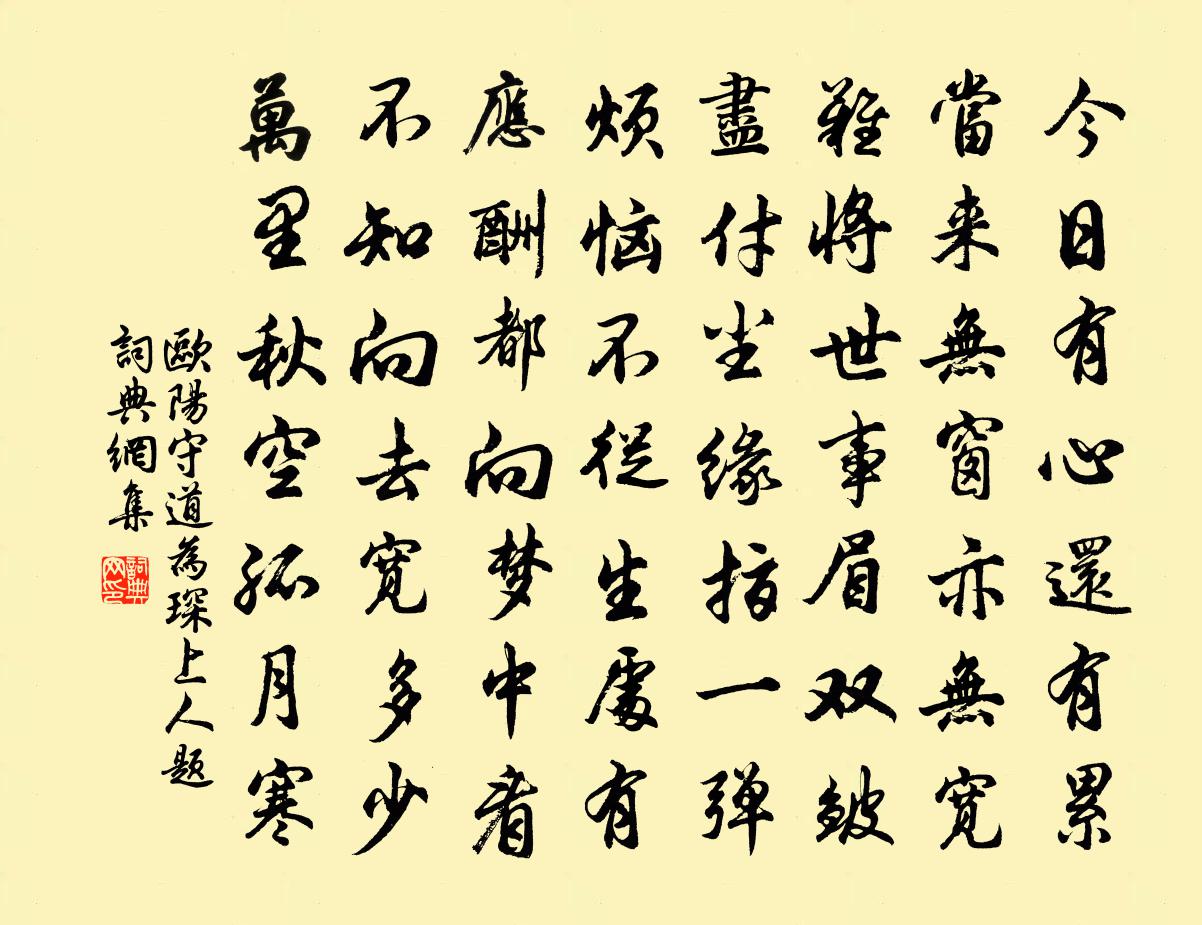 今日有心還有累
當来無窗亦無宽
難將世事眉双皱
盡付尘缘指一弹
烦恼不從生處有
應酬都向梦中看
不知向去宽多少
萬里秋空孤月寒
歐陽守道為琛上人题
詞典網集
詞典网印